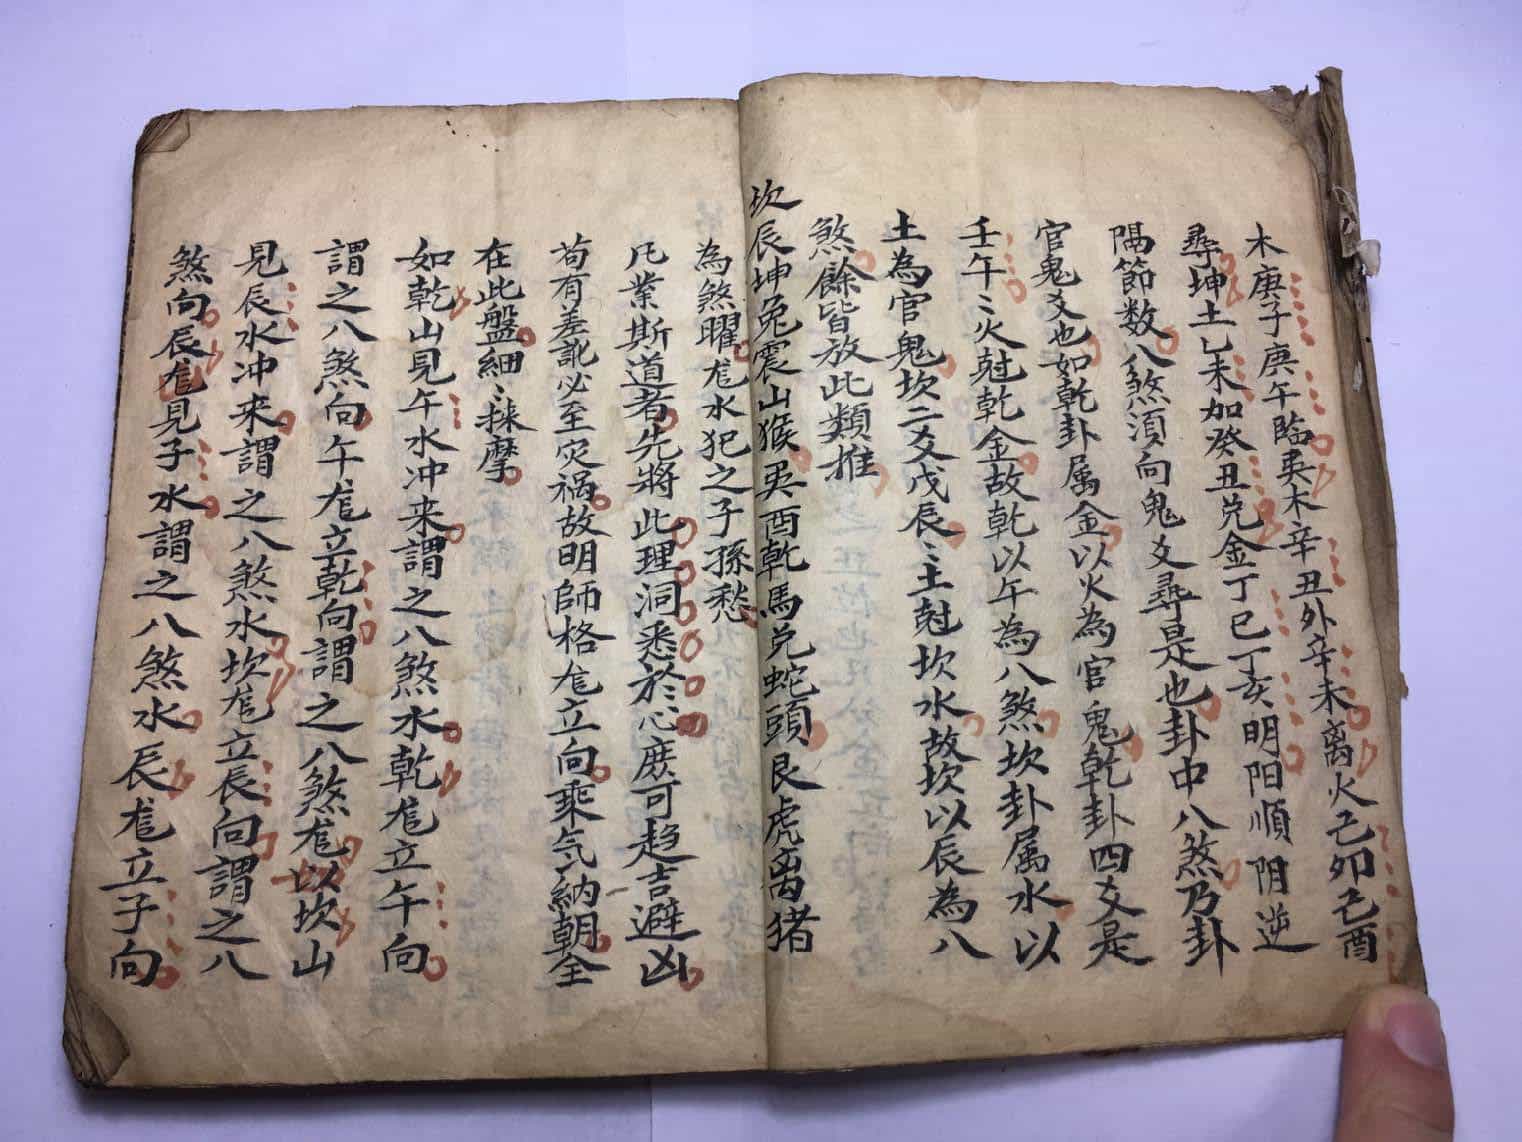 木庚子庚午臨巽木辛丑外辛未离火己卯己酉
尋坤土乙未加癸丑兑金丁巳丁亥明阳順阴逆
隅節数八煞須向鬼爻尋是也卦中八煞乃卦
官鬼爻也如乾卦属金以火為官鬼乾卦四爻是
壬午〻火尅乾金故乾以午為八煞坎卦属水以
土為官鬼坎二爻戊辰〻土尅坎水故坎以辰為八
煞餘皆放此類推
坎辰坤兔震山猴巽酉乾馬兑蛇頭艮虎离猪
為煞曜尨水犯之子孫愁
凡業斯道者先將此理洞悉於心庶可趋吉避凶
苟有差訛必至灾禍故明師格尨立向乘气納朝全
在此盤細〻揉摩
如乾山見午水冲来謂之八煞水乾尨立午向
謂之八煞向午尨立乾向謂之八煞尨以坎山
見辰水冲来謂之八煞水坎尨立辰向謂之八
煞向辰尨見子水謂之八煞水辰尨立子向